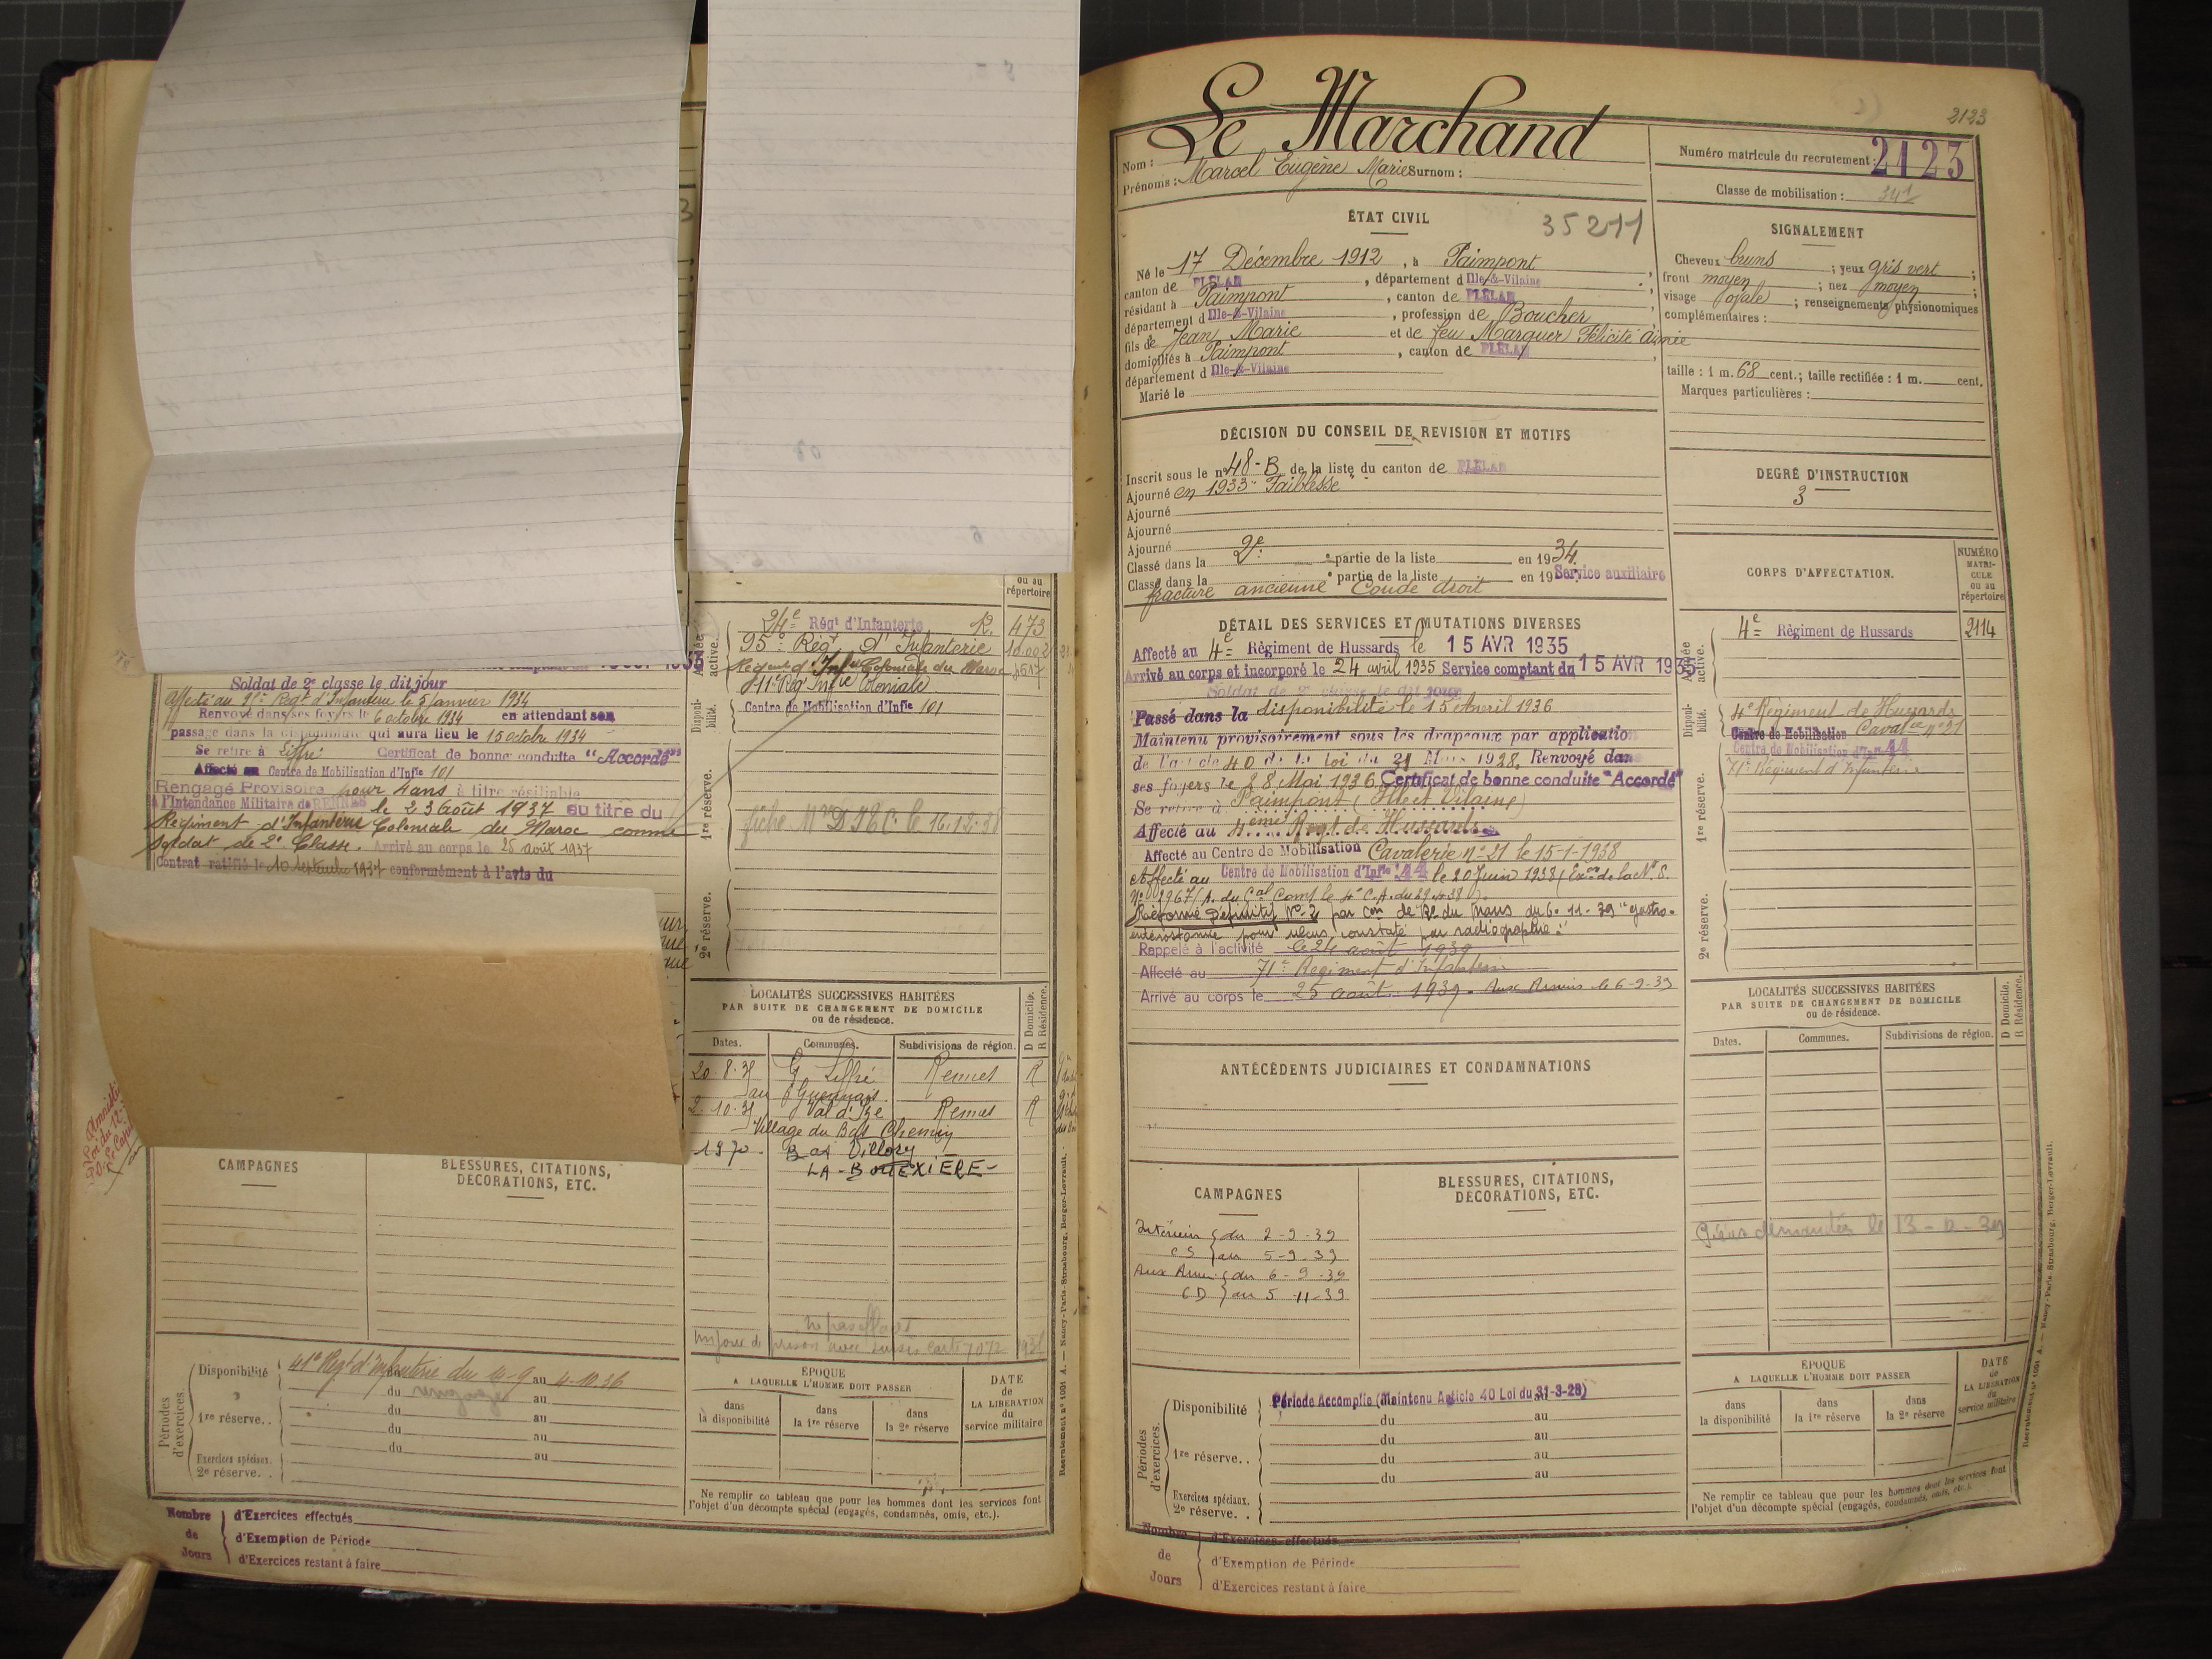 ou au
répertoire
Armée active.
24e Régt d'Infanterie R. 473
95e Régt d'Infanterie
Régiment d'Infie Coloniale du Maroc
11e Régt Infie Coloniale
Disponibilité.
Centre de Mobilisation d'Infie 101
1re réserve.
2e réserve.
Soldat de 2e classe le dit jour
Affecté au Régt d'Infanterie le 5 janvier 1934
Renvoyé dans ses foyers le 6 octobre 1934 en attendant son
passage dans la disponibilité qui aura lieu le 15 octobre 1934
Se retire à Liffré Certificat de bonne conduite "Accordé"
Affecté au Centre de Mobilisation d'Infie 101
Rengagé Provisoire pour 4 ans à titre résiliable
à l'Intendance Militaire de RENNES le 23 août 1937 au titre du
Régiment d'Infanterie Coloniale du Maroc comme
soldat de 2e Classe. Arrivé au corps le 25 août 1937
Contrat ratifié le 10 septembre 1937 conformément à l'avis du
LOCALITÉS SUCCESSIVES HABITÉES
PAR SUITE DE CHANGEMENT DE DOMICILE
ou de résidence.
D Domicile.
R Résidence.
Dates. Communes. Subdivisions de région.
Liffré Rennes R
Val d'Izé Rennes R
Village du Bas Chemin
1970 Bas Villory
LA-BOUEXIERE-
CAMPAGNES
BLESSURES, CITATIONS,
DÉCORATIONS, ETC.
Périodes d'exercices.
Disponibilité 41e Régt d'Infanterie du au 4-10.36
du au
1re réserve.. du au
du au
du au
Exercices spéciaux.
2e réserve. .
ÉPOQUE
A LAQUELLE L'HOMME DOIT PASSER
dans la disponibilité
dans la 1re réserve
dans la 2e réserve
DATE de LA LIBÉRATION du service militaire
Ne remplir ce tableau que pour les hommes dont les services font
l'objet d'un décompte spécial (engagés, condamnés, omis, etc.).
Nombre de Jours
d'Exercices effectués
d'Exemption de Période
d'Exercices restant à faire
2123
Nom : Le Marchand
Prénoms : Marcel Eugène Marie Surnom :
Numéro matricule du recrutement : 2123
Classe de mobilisation :
ÉTAT CIVIL
35211
Né le 17 Décembre 1912, à Paimpont
canton de PLÉLAN, département d Ille-&-Vilaine
résidant à Paimpont, canton de PLÉLAN
département d Ille-&-Vilaine, profession de Boucher
fils de Jean Marie et de feu Marquer Félicité Aimée
domiciliés à Paimpont, canton de PLÉLAN
département d Ille-&-Vilaine
Marié le
SIGNALEMENT
Cheveux bruns ; yeux gris vert ;
front moyen ; nez moyen ;
visage ovale ; renseignements physionomiques
complémentaires :
taille : 1 m. 68 cent.; taille rectifiée : 1 m. cent.
Marques particulières :
DÉCISION DU CONSEIL DE REVISION ET MOTIFS
Inscrit sous le n° 48-B de la liste du canton de PLÉLAN
Ajourné en 1933 "Faiblesse"
Ajourné
Ajourné
Ajourné
Classé dans la 2e partie de la liste en 1934.
Classé dans la e partie de la liste en 19 Service auxiliaire
fracture ancienne Coude droit
DEGRÉ D'INSTRUCTION
3
DÉTAIL DES SERVICES ET MUTATIONS DIVERSES
Affecté au 4e Régiment de Hussards le 15 AVR 1935
Arrivé au corps et incorporé le 24 avril 1935 Service comptant du 15 AVR 1935
Soldat de 2e classe le dit jour
Passé dans la disponibilité le 15 Avril 1936
Maintenu provisoirement sous les drapeaux par application
de l'art de 40 de la loi du 31 Mars 1928. Renvoyé dans
ses foyers le 28 Mai 1936 Certificat de bonne conduite "Accordé"
Se retire à Paimpont (Ille et Vilaine)
Affecté au 4ème Régt de Hussards
Affecté au Centre de Mobilisation Cavalerie n° 21 le 15-1-1938
Affecté au Centre de Mobilisation d'Infie 44 le 20 Juin 1938 (Exon de la N. S.
N° 2967/A. du Gal Comt le 4e C.A. du 29.4.38)
Réformé Définitif N° 2 par Con de Re du Mans du 6.11.39 "gastro-
entérostomie pour ulcus constaté par radiographie."
Rappelé à l'activité le 24 août 1939
Affecté au 71e Régiment d'Infanterie
Arrivé au corps le 25 août 1939. Aux Armées le 6-9-39
CORPS D'AFFECTATION.
NUMÉRO MATRICULE ou au répertoire
Armée active.
4e Régiment de Hussards 2114
Disponibilité.
4e Régiment de Hussards
Centre de Mobilisation Cavalie n° 21
Centre de Mobilisation d'Infie 44
71e Régiment d'Infanterie
1re réserve.
2e réserve.
LOCALITÉS SUCCESSIVES HABITÉES
PAR SUITE DE CHANGEMENT DE DOMICILE
ou de résidence.
D Domicile.
R Résidence.
Dates. Communes. Subdivisions de région.
ANTÉCÉDENTS JUDICIAIRES ET CONDAMNATIONS
CAMPAGNES
Intérieur du 2-9-39
CS au 5-9-39
Aux Armées du 6-9-39
CD au 5-11-39
BLESSURES, CITATIONS,
DÉCORATIONS, ETC.
Périodes d'exercices.
Disponibilité Période Accomplie (Maintenu Article 40 Loi du 31-3-28)
du au
1re réserve.. du au
du au
du au
Exercices spéciaux.
2e réserve. .
ÉPOQUE
A LAQUELLE L'HOMME DOIT PASSER
dans la disponibilité
dans la 1re réserve
dans la 2e réserve
DATE de LA LIBÉRATION du service militaire
Ne remplir ce tableau que pour les hommes dont les services font
l'objet d'un décompte spécial (engagés, condamnés, omis, etc.).
Nombre de Jours
d'Exercices effectués
d'Exemption de Période
d'Exercices restant à faire